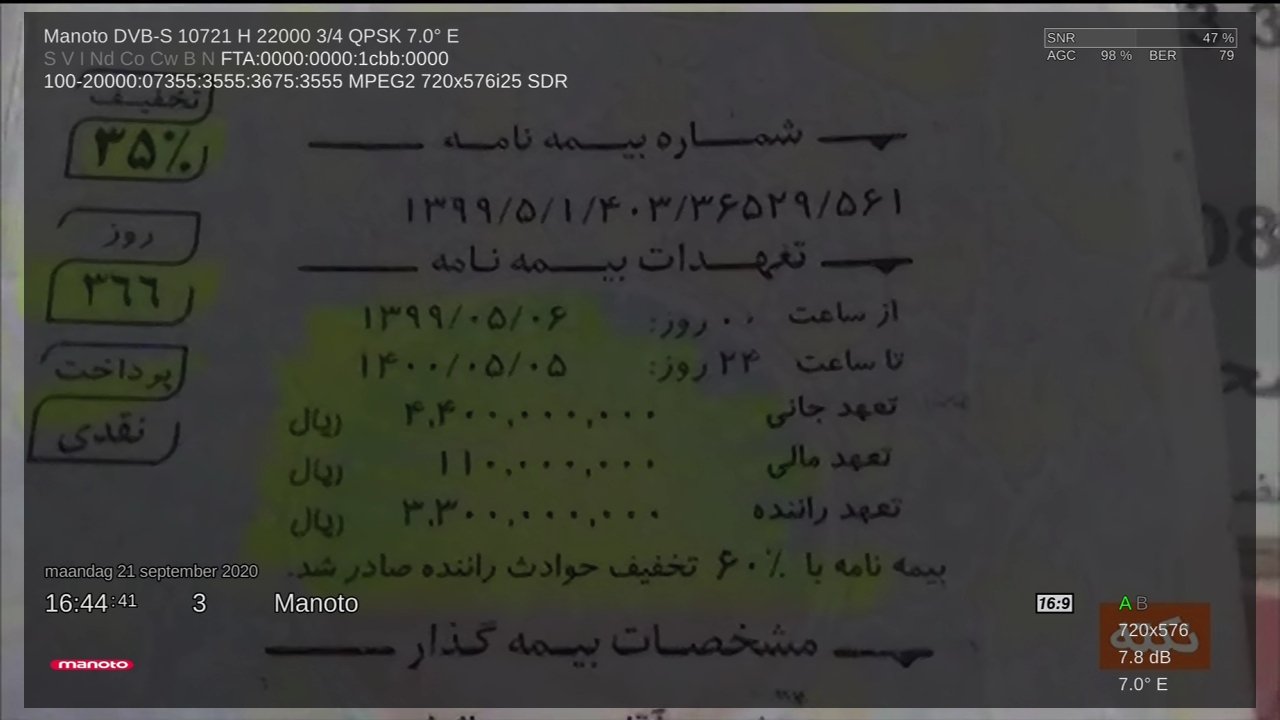 Manoto DVB-S 10721 H 22000 3/4 QPSK 7.0° E
S V I Nd Co Cw B N FTA:0000:0000:1cbb:0000
100-20000:07355:3555:3675:3555 MPEG2 720x576i25 SDR
SNR 47 %
AGC 98 % BER 79
تخفیف
۳۵٪
روز
۳۶۶
پرداخت
نقدی
شماره بیمه نامه
۱۳۹۹/۵/۱/۴۰۳/۳۶۵۲۹/۵۶۱
تعهدات بیمه نامه
از ساعت ۰۰ روز: ۱۳۹۹/۰۵/۰۶
تا ساعت ۲۴ روز: ۱۴۰۰/۰۵/۰۵
تعهد جانی ۴,۴۰۰,۰۰۰,۰۰۰ ریال
تعهد مالی ۱۱۰,۰۰۰,۰۰۰ ریال
تعهد راننده ۳,۳۰۰,۰۰۰,۰۰۰ ریال
بیمه نامه با ۶۰٪ تخفیف حوادث راننده صادر شد.
مشخصات بیمه گذار
maandag 21 september 2020
16:44:41 3 Manoto
manoto
16:9
A B
720x576
7.8 dB
7.0° E